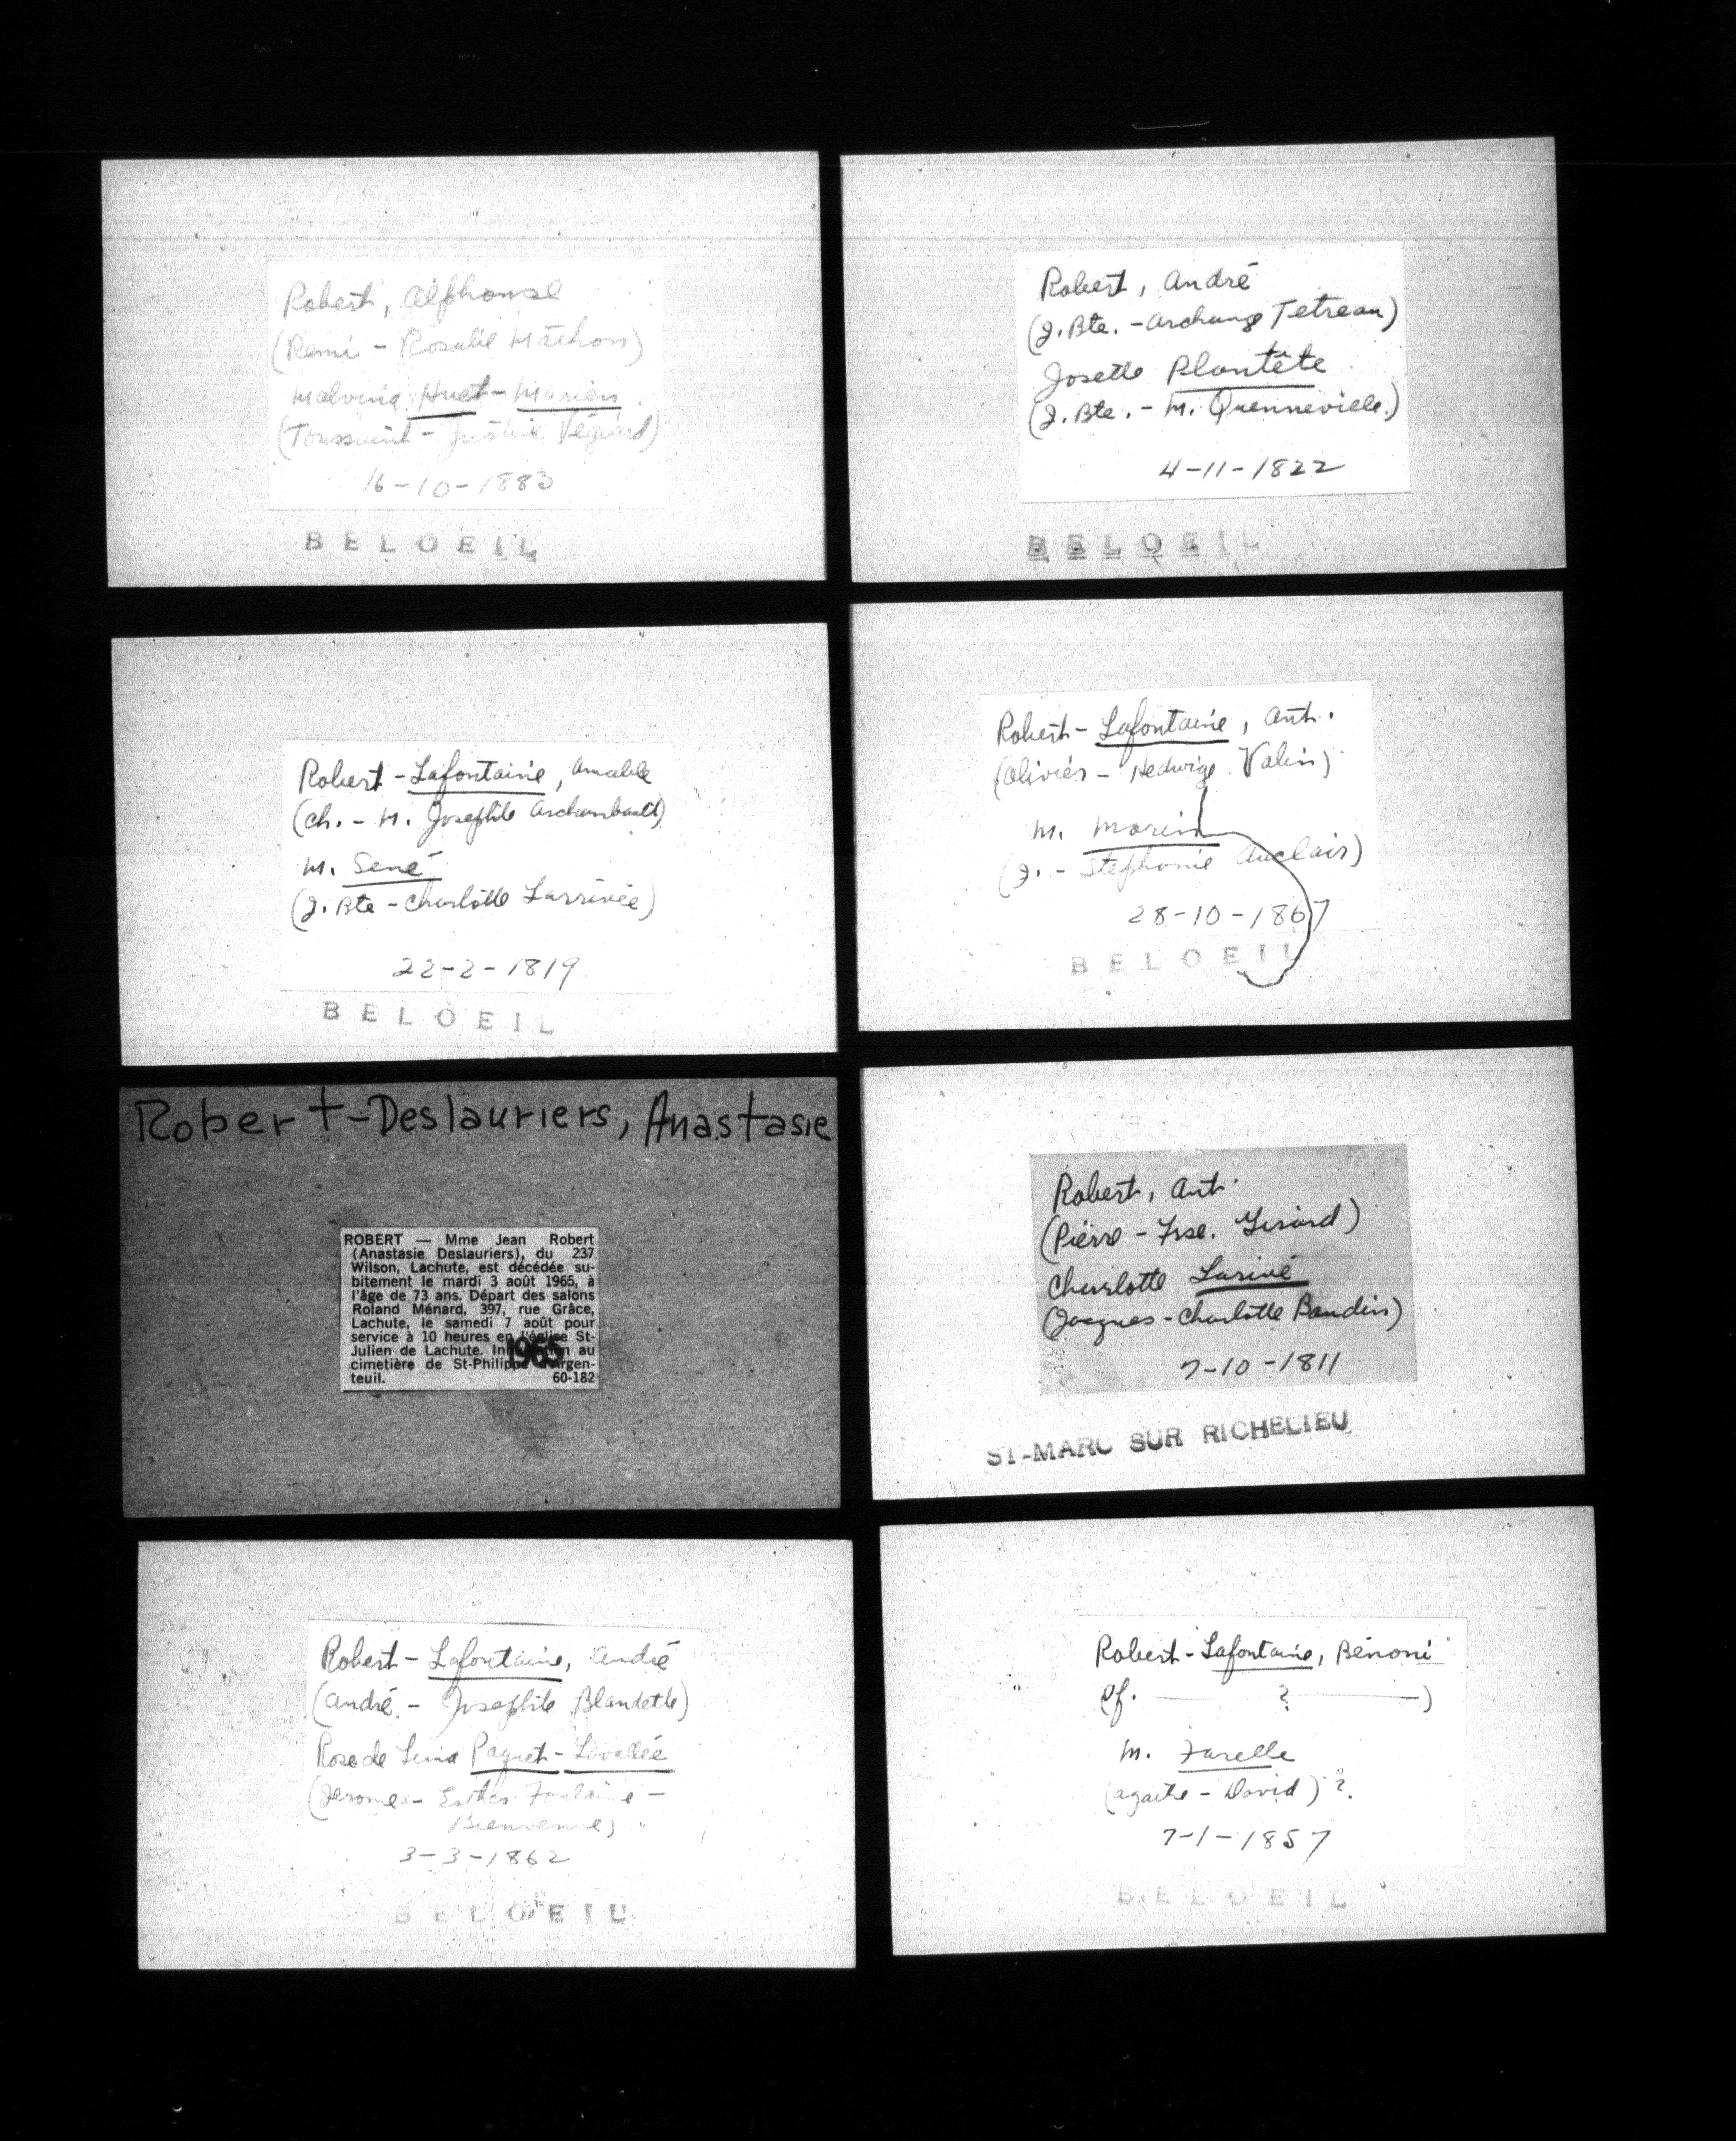 Robert, Alphonse
(Remi - Rosalie Mathon)
Malvina Huet - Marien
(Toussaint - Justine Végiard)
16-10-1883
BELOEIL
Robert, André
(J. Bte. - Archange Tetreau)
Josette Plantête
(J. Bte. - M. Quenneville)
4-11-1822
BELOEIL
Robert - Lafontaine, Amable
(Ch. - M. Josephte Archambault)
M. Sené
(J. Bte - Charlotte Larrivée)
22-2-1819
BELOEIL
Robert - Lafontaine, Ant.
(Olivier - Hedwige Valin)
M. Morin
(J. - Stephanie Auclair)
28-10-1867
BELOEIL
Robert-Deslauriers, Anastasie
ROBERT — Mme Jean Robert
(Anastasie Deslauriers), du 237
Wilson, Lachute, est décédée su-
bitement le mardi 3 août 1965, à
l'âge de 73 ans. Départ des salons
Roland Ménard, 397, rue Grâce,
Lachute, le samedi 7 août pour
service à 10 heures en l'église St-
Julien de Lachute. au
cimetière de St-Philippe d'Argen-
teuil. 60-182
1965
Robert, Ant.
(Pierre - Frse. Girard)
Charlotte Larivé
(Jacques - Charlotte Baudin)
7-10-1811
ST-MARC SUR RICHELIEU
Robert - Lafontaine, André
(André - Josephte Blandette)
Rose de Lima Paquet - Lavallée
(Jerome - Esther Fontaine -
Bienvenue)
3-3-1862
BELOEIL
Robert - Lafontaine, Bénoni
? )
M. Farelle
(Agaite - David) ?.
7-1-1857
BELOEIL